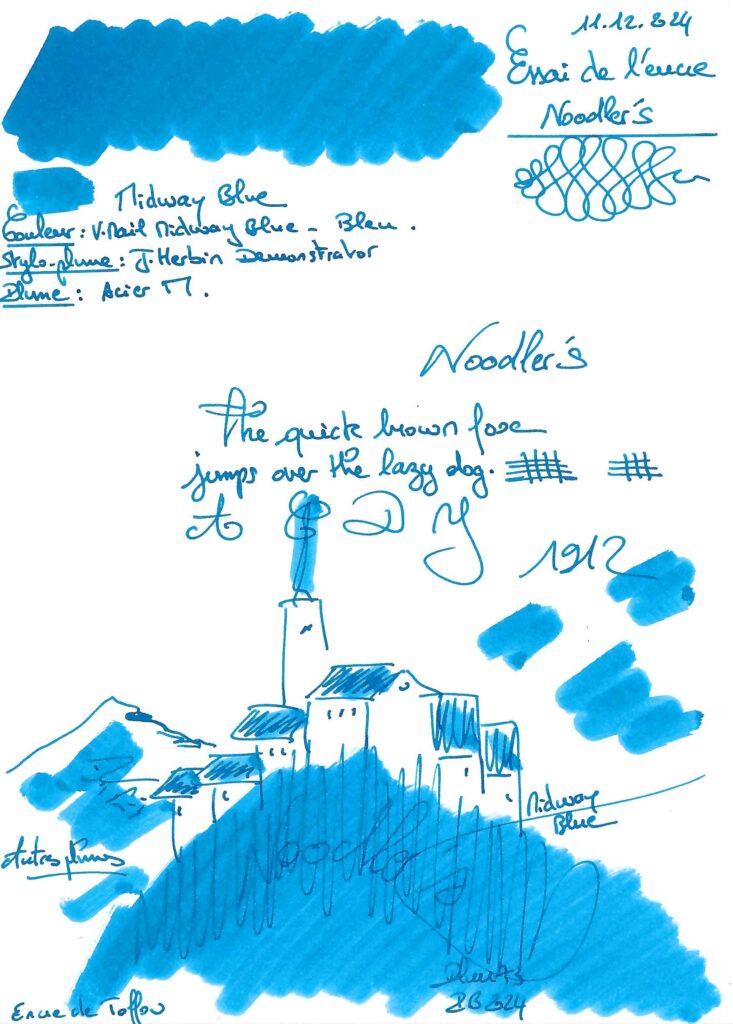 11.12.2024
Essai de l'encre
Noodler's
Midway Blue
Couleur : V-Mail Midway Blue - Bleu.
Stylo-plume : J. Herbin Demonstrator
Plume : Acier M.
Noodler's
The quick brown fox
jumps over the lazy dog.
A E D Y
1912
Midway
Blue
Autres plumes
Noodler's
2024
Encre de Toffou